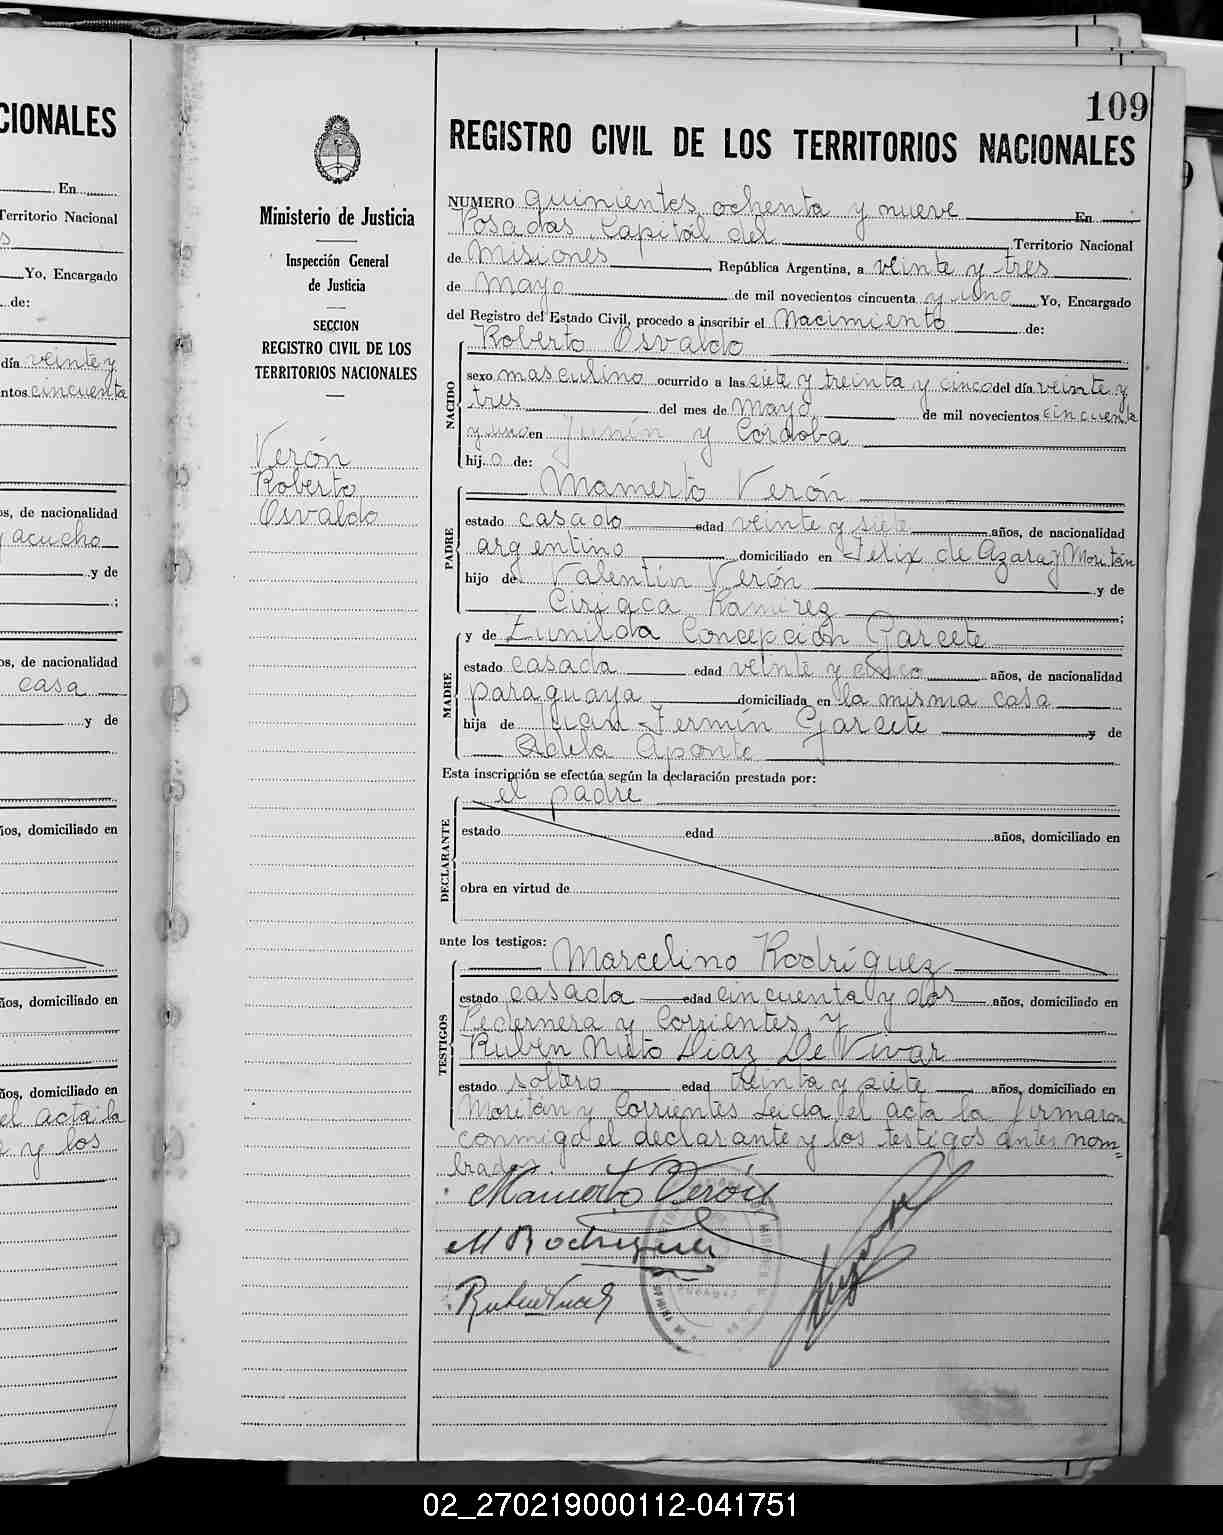 CIONALES
En
Territorio Nacional
Yo, Encargado
de:
día veinte y
ntos cincuenta
os, de nacionalidad
y de
os, de nacionalidad
casa
y de
ños, domiciliado en
ños, domiciliado en
ños, domiciliado en
el acta la
e y los
Ministerio de Justicia
Inspección General
de Justicia
SECCION
REGISTRO CIVIL DE LOS
TERRITORIOS NACIONALES
Verón
Roberto
Osvaldo
109
REGISTRO CIVIL DE LOS TERRITORIOS NACIONALES
NUMERO quinientos ochenta y nueve En
Posadas Capital del Territorio Nacional
de Misiones, República Argentina, a veinte y tres
de Mayo de mil novecientos cincuenta y uno Yo, Encargado
del Registro del Estado Civil, procedo a inscribir el Nacimiento de:
Roberto Osvaldo
NACIDO
sexo masculino ocurrido a las siete y treinta y cinco del día veinte y
tres del mes de Mayo de mil novecientos cincuenta
y uno en Junín y Córdoba
hijo de:
PADRE
Mamerto Verón
estado casado edad veinte y siete años, de nacionalidad
argentino domiciliado en Felix de Azara y Moritán
hijo de Valentín Verón y de
Ciriaca Ramírez;
y de Eunilda Concepción Garcete
MADRE
estado casada edad veinte y cinco años, de nacionalidad
paraguaya domiciliada en la misma casa
hija de Juan Fermín Garcete y de
Adela Aponte
Esta inscripción se efectúa según la declaración prestada por:
el padre
DECLARANTE
estado edad años, domiciliado en
obra en virtud de
ante los testigos:
Marcelino Rodríguez
TESTIGOS
estado casada edad cincuenta y dos años, domiciliado en
Pedernera y Corrientes y
Rubén Nieto Diaz De Vivar
estado soltero edad treinta y siete años, domiciliado en
Moritán y Corrientes Leída el acta la firmaron
conmigo el declarante y los testigos antes nom=
brados.
Mamerto Verón
M Rodriguez
02_270219000112-041751